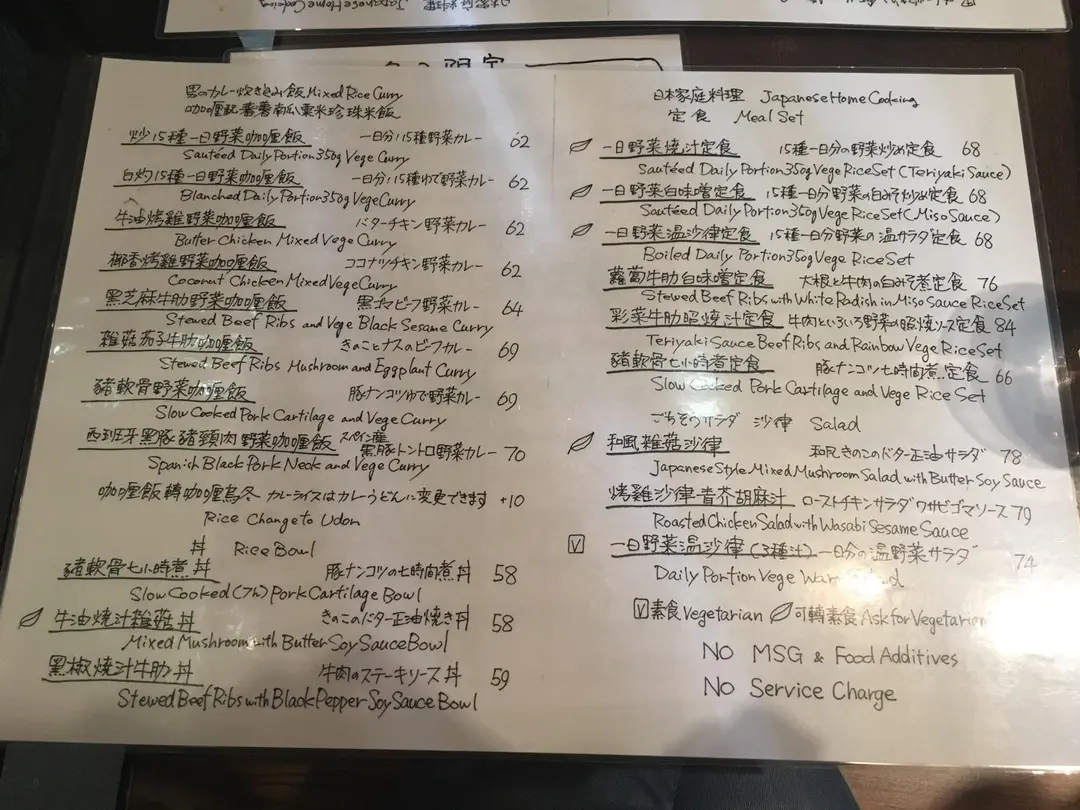 Mixed Rice Curry
咖喱配蕃薯南瓜粟米珍珠米飯
炒15種一日野菜咖喱飯 一日分!15種野菜カレー 62
Sautéed Daily Portion 350g Vege Curry
白灼15種一日野菜咖喱飯 一日分!15種ゆで野菜カレー 62
Blanched Daily Portion 350g Vege Curry
牛油烤雞野菜咖喱飯 バターチキン野菜カレー 62
Butter Chicken Mixed Vege Curry
椰香烤雞野菜咖喱飯 ココナツチキン野菜カレー 62
Coconut Chicken Mixed Vege Curry
黑芝麻牛肋野菜咖喱飯 黒ゴマビーフ野菜カレー 64
Stewed Beef Ribs and Vege Black Sesame Curry
雜菇茄子牛肋咖喱飯 きのことナスのビーフカレー 69
Stewed Beef Ribs Mushroom and Eggplant Curry
豬軟骨野菜咖喱飯 豚ナンコツゆで野菜カレー 69
Slow Cooked Pork Cartilage and Vege Curry
西班牙黑豚豬頸肉野菜咖喱飯 スペイン産黒豚トントロ野菜カレー 70
Spanish Black Pork Neck and Vege Curry
咖喱飯轉咖喱烏冬 カレーライスはカレーうどんに変更できます +10
Rice Change to Udon
丼 Rice Bowl
豬軟骨七小時煮丼 豚ナンコツの七時間煮丼 58
Slow Cooked (7h) Pork Cartilage Bowl
牛油燒汁雜菇丼 きのこのバター正油焼き丼 58
Mixed Mushroom with Butter Soy Sauce Bowl
黑椒燒汁牛肋丼 牛肉のステーキソース丼 59
Stewed Beef Ribs with Black Pepper Soy Sauce Bowl
日本家庭料理 Japanese Home Cooking
定食 Meal Set
一日野菜燒汁定食 15種一日分の野菜炒め定食 68
Sautéed Daily Portion 350g Vege Rice Set (Teriyaki Sauce)
一日野菜白味噌定食 15種一日分野菜の白みそ炒め定食 68
Sautéed Daily Portion 350g Vege Rice Set (Miso Sauce)
一日野菜温沙律定食 15種一日分野菜の温サラダ定食 68
Boiled Daily Portion 350g Vege Rice Set
蘿蔔牛肋白味噌定食 大根と牛肉の白みそ煮定食 76
Stewed Beef Ribs with White Radish in Miso Sauce Rice Set
彩菜牛肋照燒汁定食 牛肉といろいろ野菜の照焼ソース定食 84
Teriyaki Sauce Beef Ribs and Rainbow Vege Rice Set
豬軟骨七小時煮定食 豚ナンコツ七時間煮定食 66
Slow Cooked Pork Cartilage and Vege Rice Set
ごちそうサラダ 沙律 Salad
和風雜菇沙律 和風きのこのバター正油サラダ 78
Japanese Style Mixed Mushroom Salad with Butter Soy Sauce
烤雞沙律-青芥胡麻汁 ローストチキンサラダワサビゴマソース 79
Roasted Chicken Salad with Wasabi Sesame Sauce
V 一日野菜温沙律(3種汁) 一日分の温野菜サラダ 74
Daily Portion Vege
V 素食 Vegetarian 可轉素食 Ask for Vegetarian
No MSG & Food Additives
No Service Charge